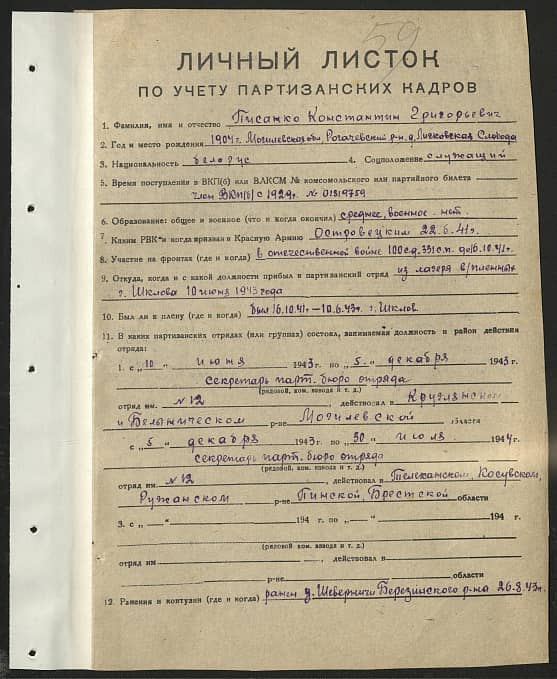 59
ЛИЧНЫЙ ЛИСТОК
ПО УЧЕТУ ПАРТИЗАНСКИХ КАДРОВ
1. Фамилия, имя и отчество Писанко Константин Григорьевич
2. Год и место рождения 1904 г. Могилевская обл. Рогачевский р-н д. Слобода
3. Национальность белорус 4. Соцположение служащий
5. Время поступления в ВКП(б) или ВЛКСМ № комсомольского или партийного билета
член ВКП(б) с 1929г. № 01319759
6. Образование: общее и военное (что и когда окончил) среднее, военное - нет.
7. Каким РВК и когда призван в Красную Армию Островецким 22.6.41г.
8. Участие на фронтах (где и когда) в отечественой войне 100 с.д. 331 с.п. до 16.10.41г.
9. Откуда, когда и с какой должности прибыл в партизанский отряд из лагеря в/пленных
г. Шклова 10 июня 1943 года
10. Был ли в плену (где и когда) был 16.10.41 - 10.6.43г. г. Шклов
11. В каких партизанских отрядах (или группах) состоял, занимаемая должность и район действия
отряда:
1. с „10" июня 1943г. по „5" декабря 1943г.
секретарь парт. бюро отряда
(рядовой, ком. взвода и т. д.)
отряд им. №12, действовал в Круглянском
и Белыничском р-не Могилевской области
с „5" декабря 1943г. по „30" июля 1944г.
секретарь парт. бюро отряда
(рядовой, ком. взвода и т. д.)
отряд им. №12, действовал в Телеханском, Косувском,
Ружанском р-не Пинской, Брестской области
3. с „—" 194 г. по „—" 194 г.
(рядовой ком. взвода и т. д.)
отряд им , действовал в
р-не области
12. Ранения и контузии (где и когда) ранен д. Шеверничи Березинского р-на 26.8.43г.